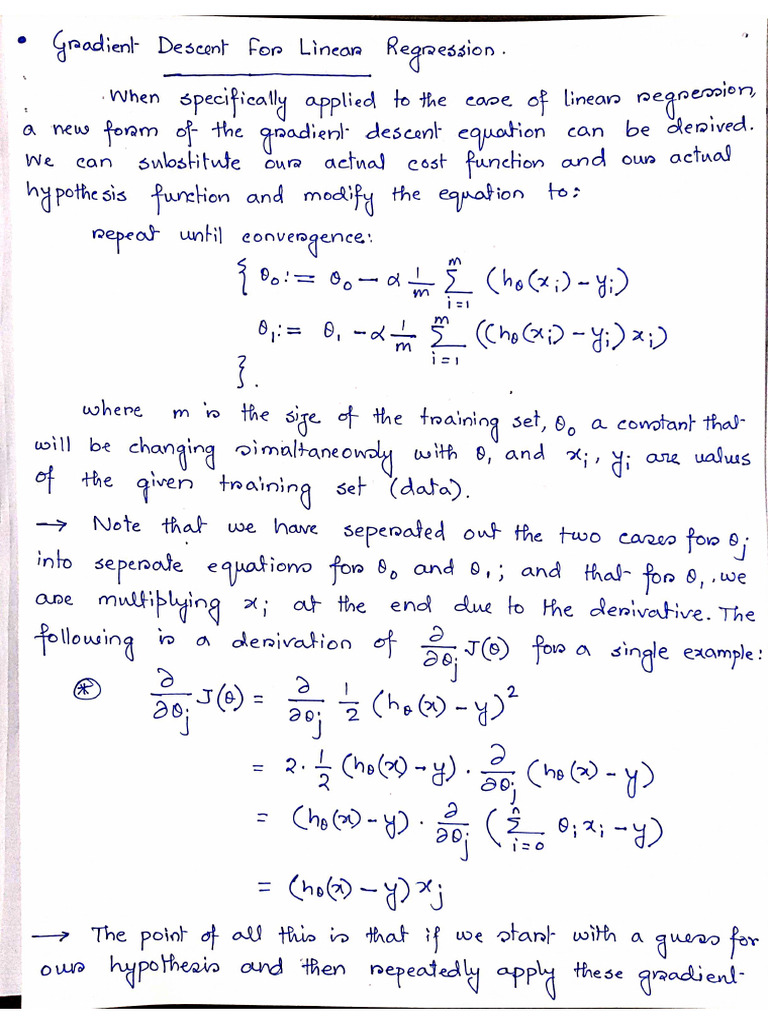 • Gradient Descent For Linear Regression.
When specifically applied to the case of linear regression,
a new form of the gradient descent equation can be derived.
We can substitute our actual cost function and our actual
hypothesis function and modify the equation to:
repeat until convergence:
{ θ₀ := θ₀ − α 1/m Σ_{i=1}^{m} (hθ(xᵢ) − yᵢ)
θ₁ := θ₁ − α 1/m Σ_{i=1}^{m} ((hθ(xᵢ) − yᵢ) xᵢ)
}.
where m is the size of the training set, θ₀ a constant that
will be changing simaltaneously with θ₁ and xᵢ, yᵢ are values
of the given training set (data).
→ Note that we have seperated out the two cases for θⱼ
into seperate equations for θ₀ and θ₁; and that for θ₁, we
are multiplying xᵢ at the end due to the derivative. The
following is a derivation of ∂/∂θⱼ J(θ) for a single example:
⊛ ∂/∂θⱼ J(θ) = ∂/∂θⱼ 1/2 (hθ(x) − y)²
= 2 · 1/2 (hθ(x) − y) · ∂/∂θⱼ (hθ(x) − y)
= (hθ(x) − y) · ∂/∂θⱼ (Σ_{i=0}^{n} θᵢ xᵢ − y)
= (hθ(x) − y) xⱼ
→ The point of all this is that if we start with a guess for
our hypothesis and then repeatedly apply these gradient